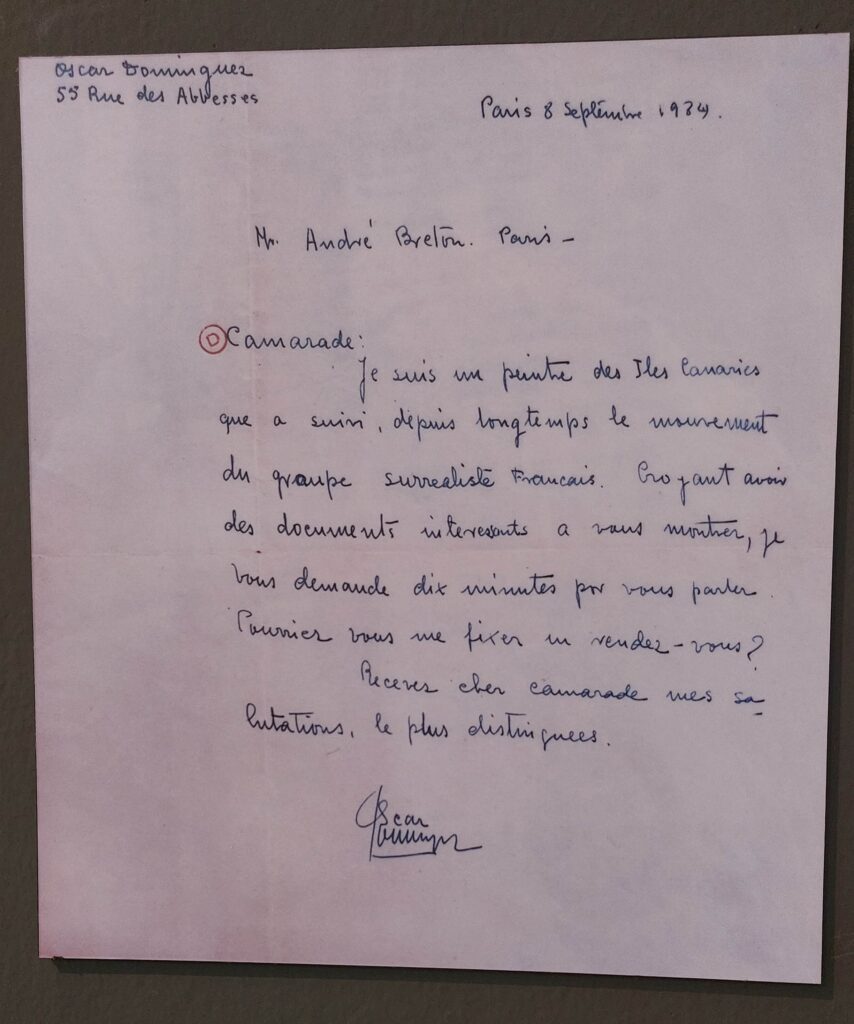 Oscar Dominguez
55 Rue des Abbesses
Paris 8 Septembre 1934.
Mr. André Breton. Paris -
D Camarade:
Je suis un peintre des Iles Canaries
que a suivi, depuis longtemps le mouvement
du groupe surrealiste Francais. Croyant avoir
des documents interessants a vous montrer, je
vous demande dix minutes por vous parler.
Pourriez vous me fixer un rendez-vous?
Recevez cher camarade mes sa
lutations, le plus distinguees.
Oscar
Dominguez